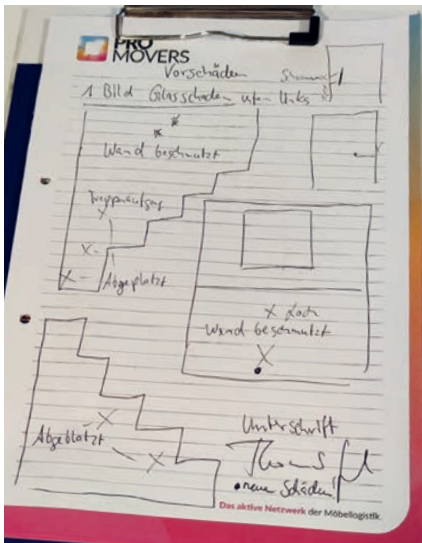 PRO
MOVERS
Vorschäden
1 Bild Glasschaden unten links
Wand beschmutzt
Treppenaufgang
Abgeplatzt
x Loch
Wand beschmutzt
Abgeblatzt
Unterschrift
neue Schäden!
Das aktive Netzwerk der Möbellogistik